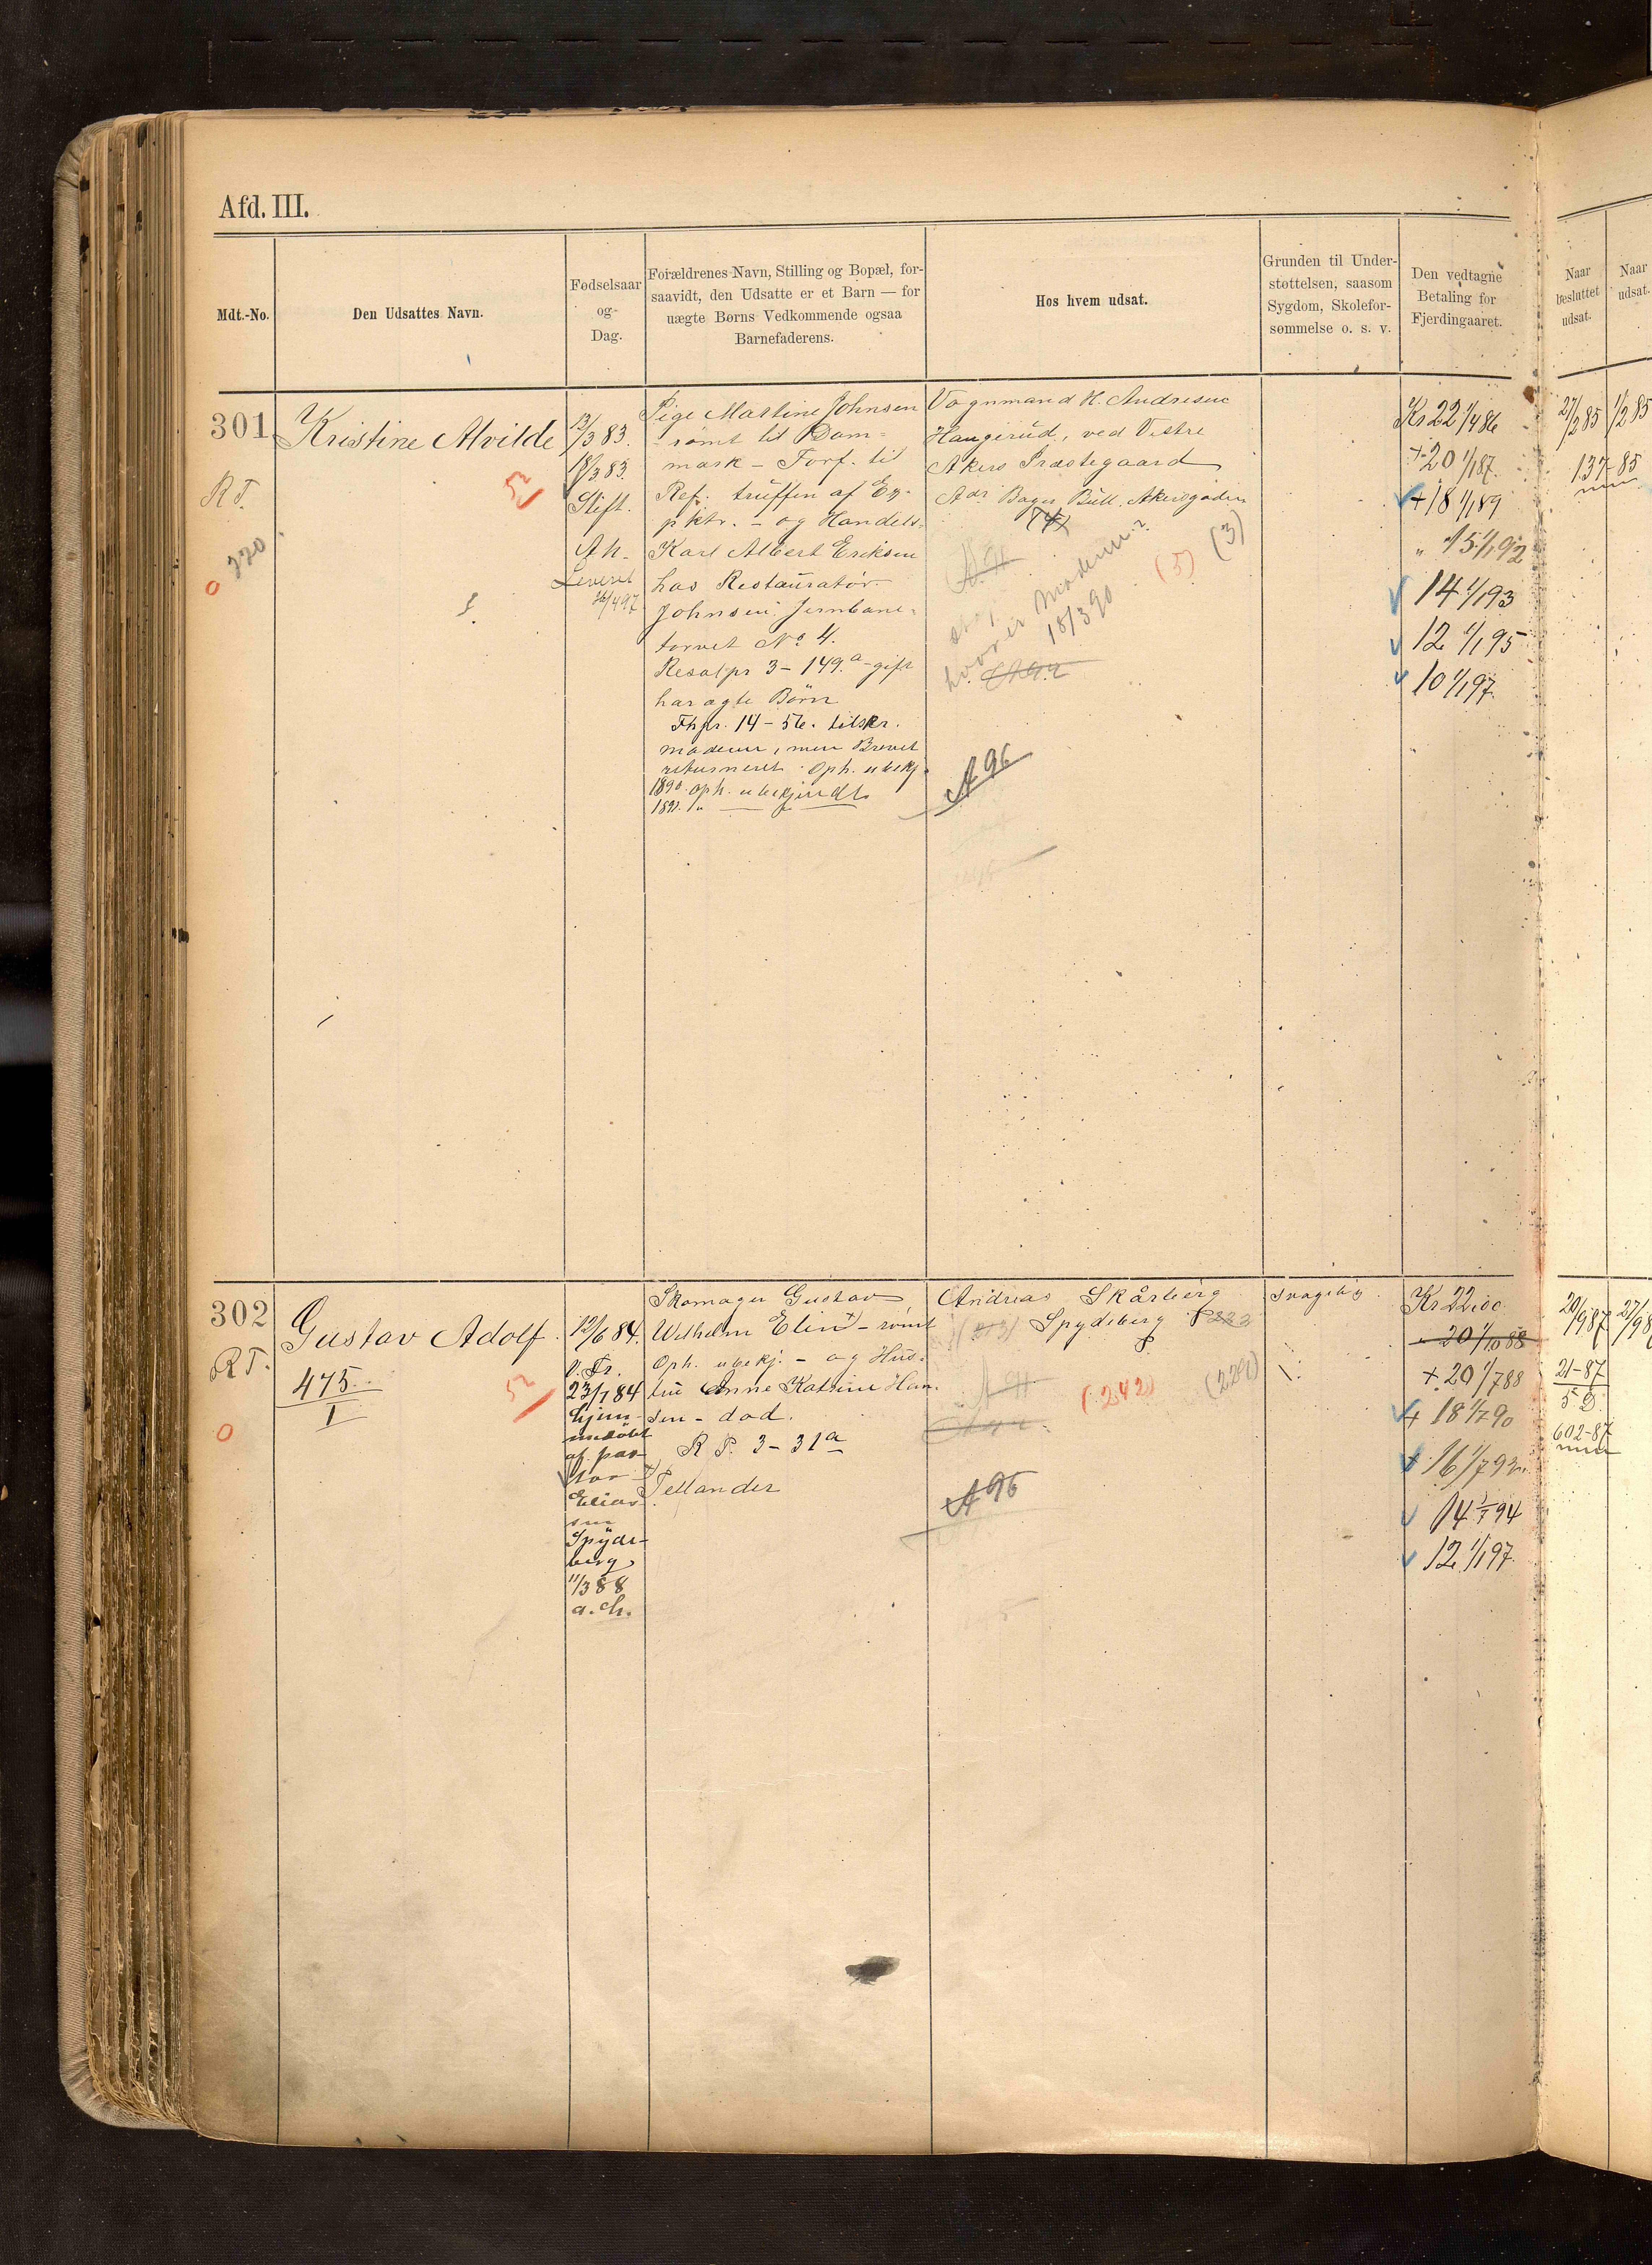 Afd. III.
Mdt.-No.
Den Udsattes Navn.
Fødselsaar
og
Dag.
Forældrenes Navn, Stilling og Bopæl, for-
saavidt, den Udsatte er et Barn — for
uægte Børns Vedkommende ogsaa
Barnefaderens.
Hos hvem udsat.
Grunden til Under-
støttelsen, saasom
Sygdom, Skolefor-
sømmelse o. s. v.
Den vedtagne
Betaling for
Fjerdingaaret.
Naar
besluttet
udsat.
Naar
udsat.
301
R T.
320
0
Kristine Alvilde
52
13/3 83.
18/3 83.
Stift.
Ak.
Leveret
/4 97
Pige Martine Johnsen
- römt til Dam-
mark - Forf. til
Ref. truffen af Ex-
pktr. - og Handels-
Karl Albert Eriksen
hos Restauratör
Johnsen, Jernbane-
torvet No 4.
Resolpr 3 - 149.a - gift
har ægte Börn
Fhpr. 14 - 56. tilskr.
moderen, men Brevet
returneret. Oph. ubekj.
1890. oph. ubekjendt
1891. " — " —
Vognmand H. Andresen
Haugerud, ved Vestre
Akers Præstegaard
Adr Bager Bull. Akersgaden
74
(5)
(3)
hvor er moderen?
18/3 90
A 96
Kr 22 1/4 86
+ 20 1/1 87.
+ 18 1/1 89
" 15 1/1 92
14 1/1 93
12 1/1 95
10 1/1 97.
27/2 85
1/2 85
137-85
302
R T.
0
Gustav Adolf.
475
I
52
12/6 84.
V. Fr.
23/7 84
hjem-
medöbt
af pas-
tor
Elias-
sen
Spyde-
berg
11/3 88
a. ch.
Skomager Gustav
Wilhelm Elin x) - römt
Oph. ubekj. - og Hus-
tru Anne Katrine Han-
sen - död.
R P. 3 - 31 a
x) Tellander
Andreas Skårberg
Spydeberg
(242)
(229)
A 96
Kr 22,00
" 20 1/10 88
+ 20 1/7 88
+ 18 1/7 90
+ 16 1/7 92.
14 1/7 94
12 1/1 97.
20/9 87
21-87
602-87